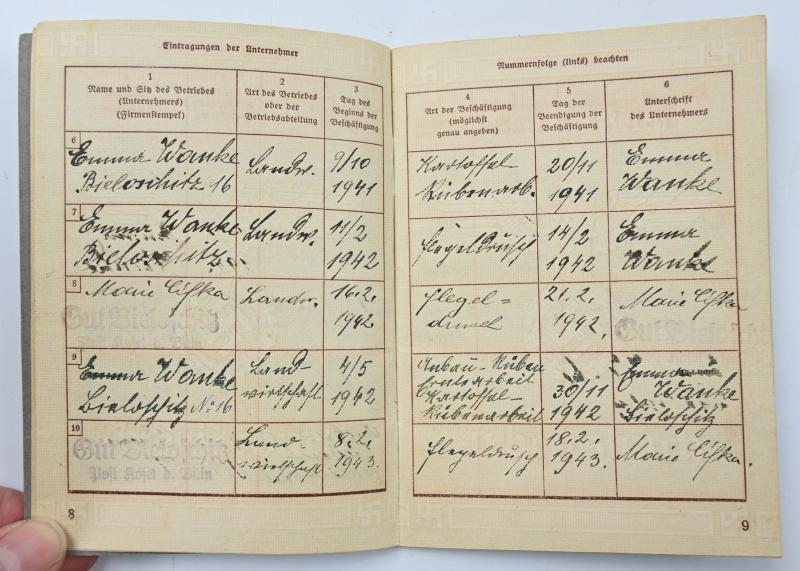 Eintragungen der Unternehmer
1
Name und Sitz des Betriebes
(Unternehmers)
(Firmenstempel)
2
Art des Betriebes
oder der
Betriebsabteilung
3
Tag des
Beginns der
Beschäftigung
6
Emma Wanke
Bieloschitz 16
Landw.
9/10
1941
7
Emma Wanke
Bieloschitz
Landw.
11/2
1942
8
Marie Cifka
Gut Bieloschitz
Post Kozel b. Bilin
Landw.
16.2.
1942
9
Emma Wanke
Bieloschitz No 16
Land-
wirtschaft
4/5
1942
10
Gut Bieloschitz
Post Kozel b. Bilin
Land-
wirtschaft
8.2.
1943.
8
Nummernfolge (links) beachten
4
Art der Beschäftigung
(möglichst
genau angeben)
5
Tag der
Beendigung der
Beschäftigung
6
Unterschrift
des Unternehmers
Kartoffel-
Rübenarb.
20/11
1941
Emma
Wanke
Flegeldrusch
14/2
1942
Emma
Wanke
Flegel=
21.2.
1942.
Marie Cifka
Gut Bieloschitz
Anbau-Rüben
Erntearbeit
Kartoffel-
Rübenarbeit
30/11
1942
Emma
Wanke
Bieloschitz
Flegeldrusch
18.2.
1943.
Marie Cifka.
9